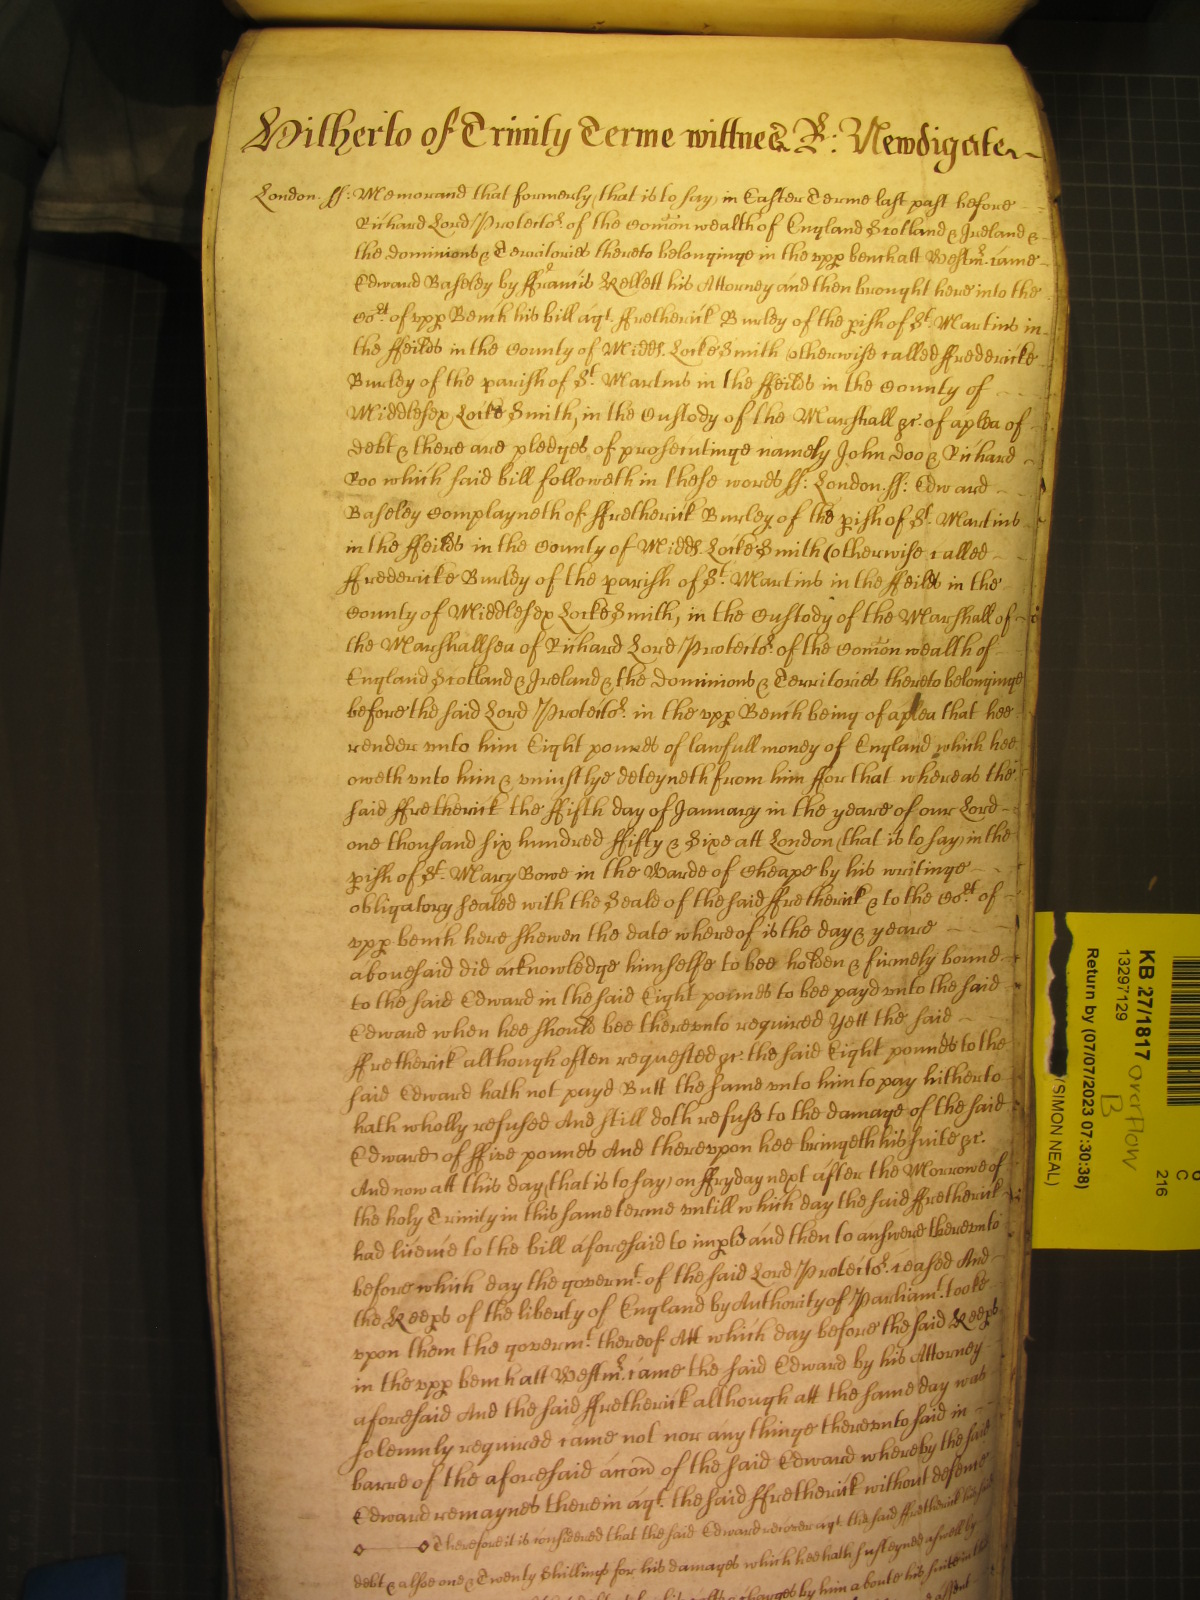 Hitherto of Trinity Terme wittnes R: Newdigate
London ss: Memorand that formerly (that is to say) in Easter Terme last past before
Richard Lord Protector of the Comon wealth of England Scotland & Ireland &
the dominions & Territories thereto belonginge in the vpp bench att Westmr. came
Edward Baseley by ffrancis Kellett his Attorney and then brought here into the
Cort of vpp Bench his bill agt. ffretherick Burley of the pish of St. Martins in
the ffeilds in the County of Midds. Locke Smith (otherwise called ffredericke
Burley of the parish of St. Martins in the ffeilds in the County of
Middlesex Locke Smith, in the Custody of the Marshall &c. of a plea of
debt & there are pledges of prosecutinge namely John Doo & Richard
Roo which said bill followeth in these words ss: London ss: Edward
Baseley Complayneth of ffretherick Burley of the pish of St. Martins
in the ffeilds in the County of Midds. Locke Smith (otherwise called
ffredericke Burley of the parish of St. Martins in the ffeilds in the
County of Middlesex Locke Smith, in the Custody of the Marshall of
the Marshallsea of Richard Lord Protector. of the Comon wealth of
England Scotland & Ireland & the Dominions & Territories thereto belonginge
before the said Lord Protector. in the vpp Bench being of a plea that hee
render vnto him Eight pounds of lawfull money of England which hee
oweth vnto him & vniustlye deteyneth from him ffor that whereas the
said ffretherick the ffifth day of January in the yeare of our Lord
one thousand six hundred ffifty & Sixe att London (that is to say) in the
pish of St. Mary Bowe in the Warde of Cheape by his writinge
obligatory sealed with the Seale of the said ffretherick & to the Cort of
vpp bench here shewen the date whereof is the day & yeare
abouesaid did acknowledge himselfe to bee holden & firmely bound
to the said Edward in the said Eight pounds to bee payd vnto the said
Edward when hee should bee therevnto required Yett the said
ffretherick although often requested &c. the said Eight pounds to the
said Edward hath not payd Butt the same vnto him to pay hitherto
hath wholly refused And still doth refuse to the damage of the said
Edward of ffive pounds And therevpon hee bringeth his suite &c.
And now att this day (that is to say) on ffryday next after the Morrowe of
the holy Trinity in this same terme vntill which day the said ffretherick
had licence to the bill aforesaid to imple and then to answere therevnto
before which day the govermt. of the said Lord Protector. ceased And
the Keeps of the liberty of England by Authority of Parliamt. tooke
vpon them the govermt. thereof Att which day before the said Keeps
in the vpp bench att Westmr. came the said Edward by his Attorney
aforesaid And the said ffretherick although att the same day was
solemnly required came not nor any thinge therevnto said in
barre of the aforesaid accon of the said Edward whereby the said
Edward remaynes therein agt. the said ffretherick without defence
Therefore it is considered that the said Edward recover agt. the said ffretherick his said
debt & alsoe one & Twenty Shillings for his damages which hee hath susteyned aswell by
charges by him aboute his suite in
assent
KB 27/1817 overflow
B
13297129
Return by (07/07/2023 07:30:38)
(SIMON NEAL)
C
216